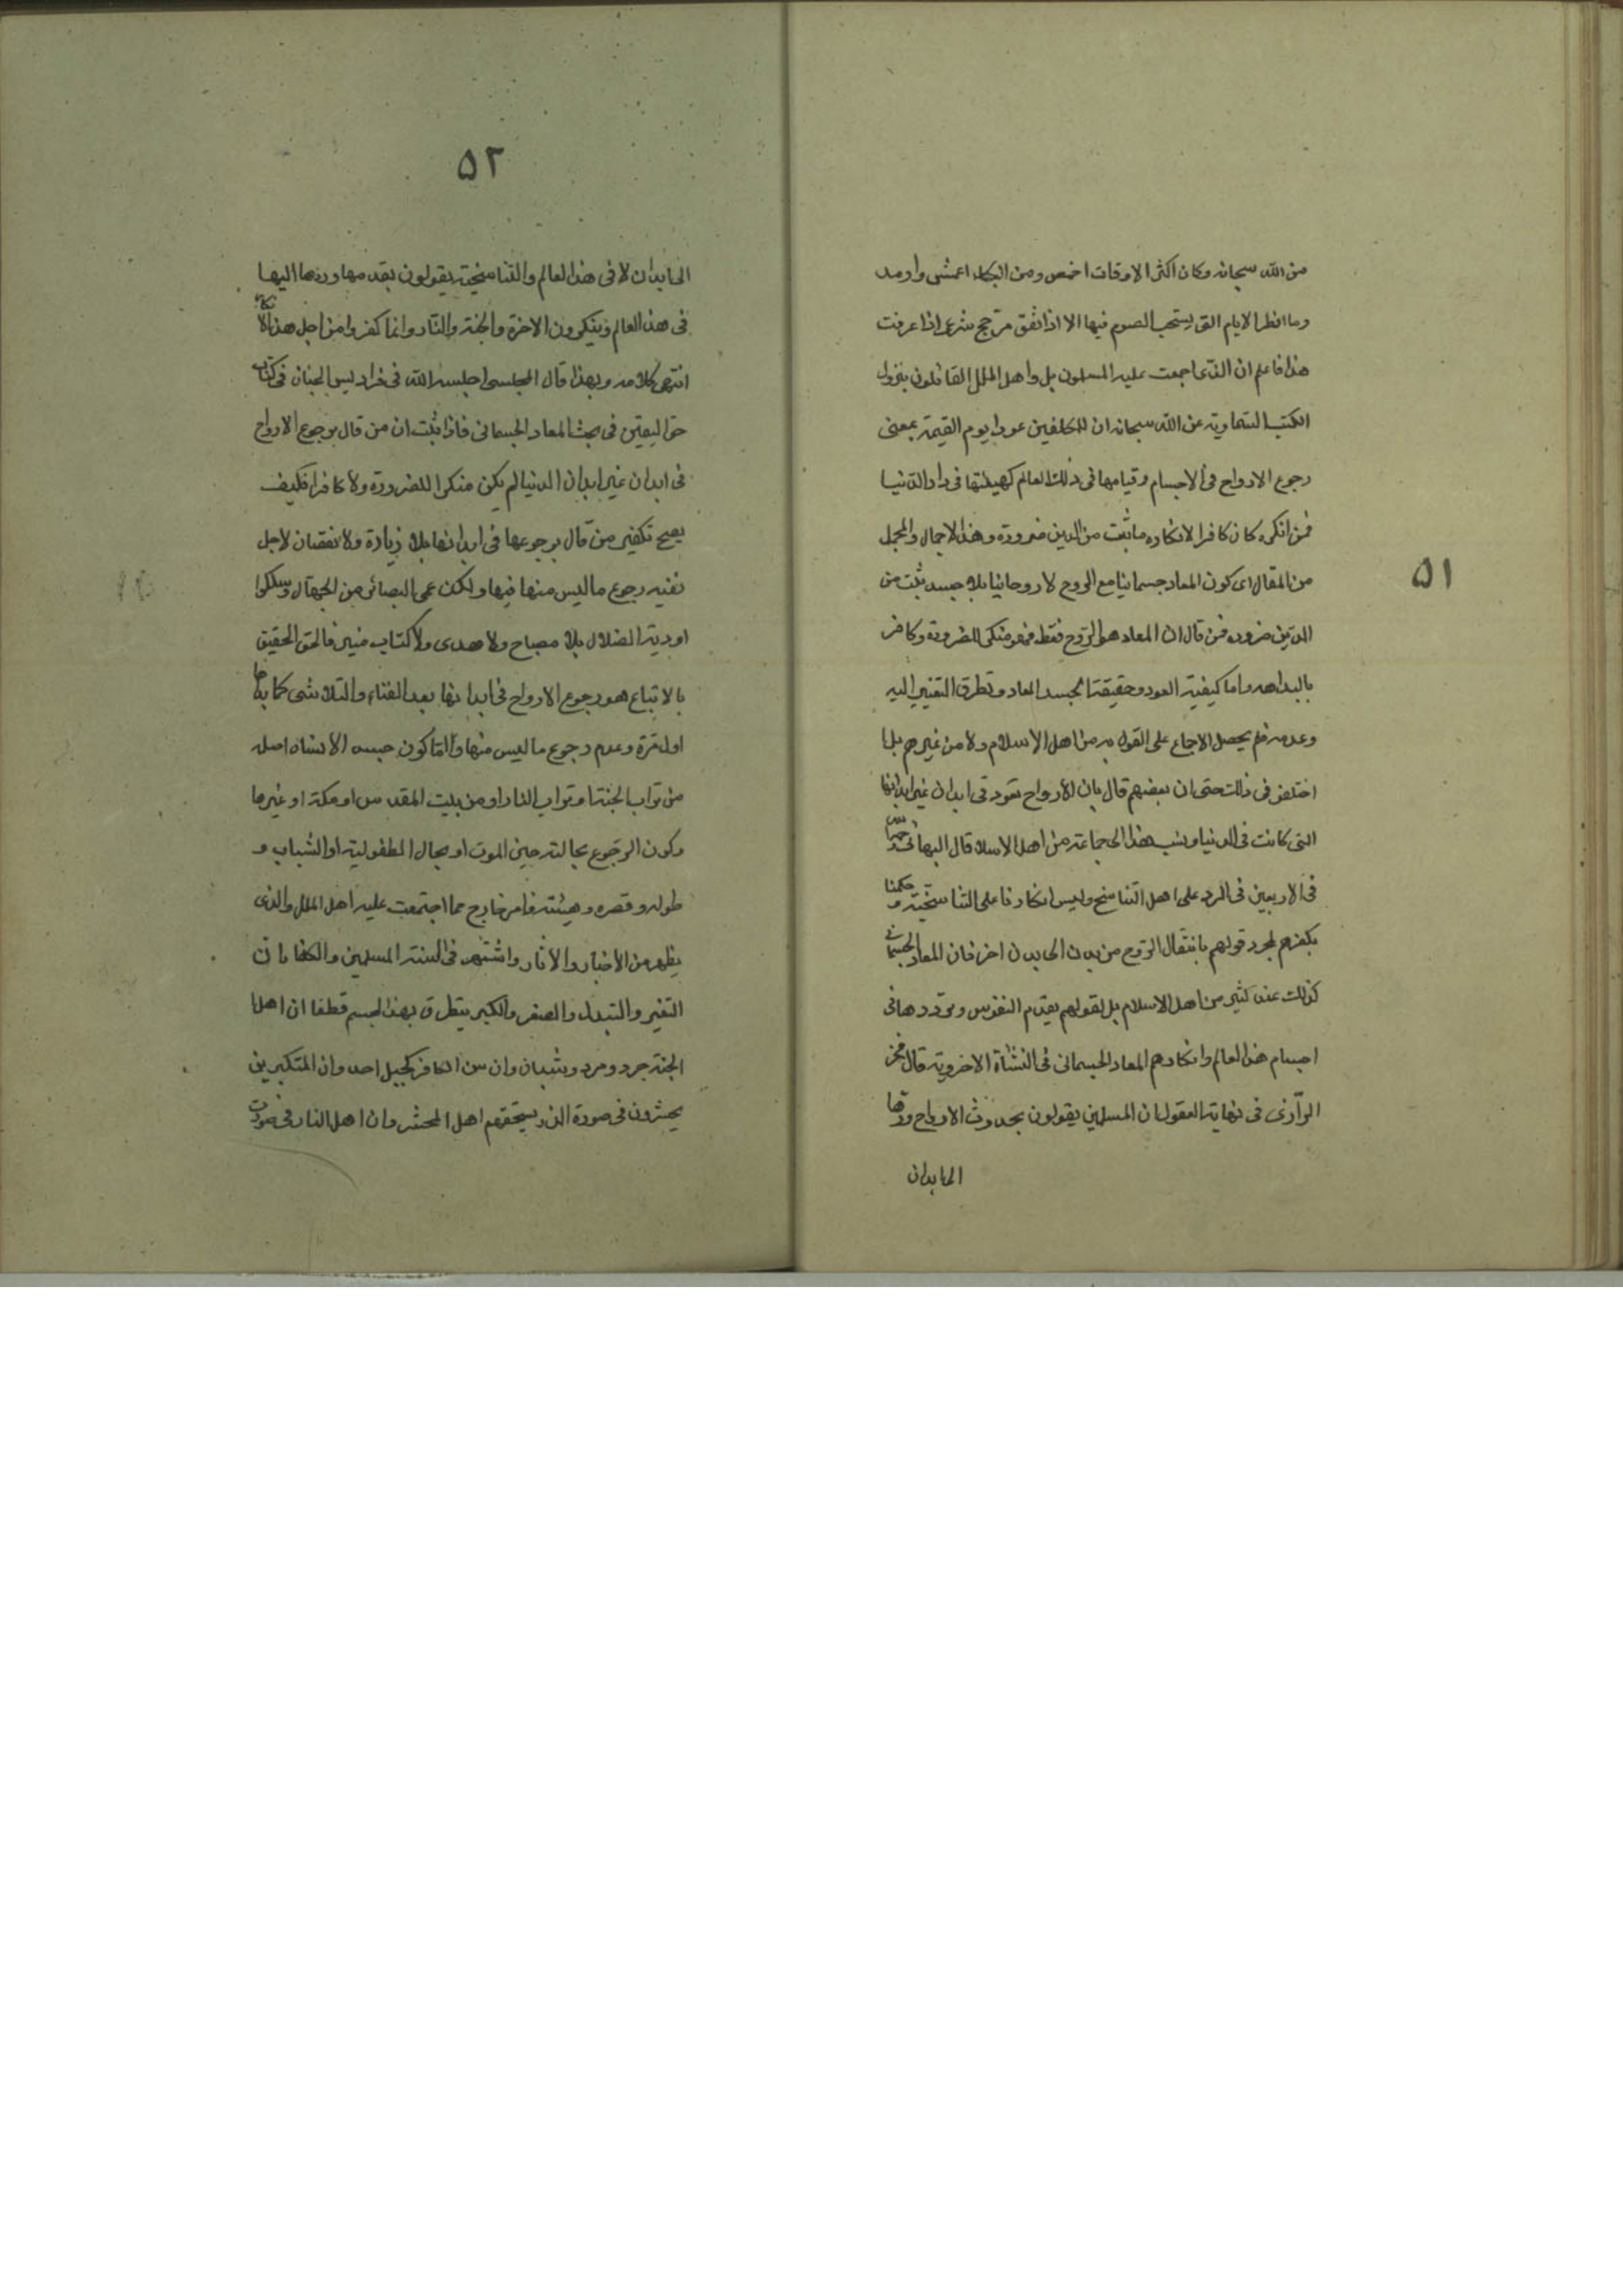 ٥١
من الله سبحانه وكان اكثر الاوقات اخمص ومن البكاء اعمش وارمد
وما افطر الايام التى يستحب الصوم فيها الا اذا اتفق مرجح شرعى اذا عرفت
هذا فاعلم ان الذى اجمعت عليه المسلمون بل واهل الملل القائلون بنزول
الكتب السماوية عن الله سبحانه ان للمكلفين عودا يوم القيمة بمعنى
رجوع الارواح فى الاجسام وقيامها فى ذلك العالم كهيئتها فى دار الدنيا
فمن انكره كان كافرا لانكاره ما ثبت من الدين ضرورة وهذا الاجمال والمجمل
من المقال اى كون المعاد جسمانيا مع الروح لا روحانيا بلا جسد ثبت من
الدين ضروره فمن قال ان المعاد هو الروح فقط فهو منكر للضرورة وكافر
بالبداهه واما كيفية العود وحقيقة الجسد المعاد وتطرق التغيير اليه
وعدمه فلم يحصل الاجماع على القول به من اهل الاسلام ولا من غيرهم بل
اختلفوا فى ذلك حتى ان بعضهم قال بان الارواح تعود فى ابدان غير ابدانها
التى كانت فى الدنيا ونسب هذا الى جماعة من اهل الاسلام قال البهائى
فى الاربعين فى الرد على اهل التناسخ وليس انكارنا على التناسخية وحكمنا
بكفرهم لمجرد قولهم بانتقال الروح من بدن الى بدن اخر فان المعاد الجسمانى
كذلك عند كثير من اهل الاسلام بل لقولهم بقدم النفوس وترددها فى
اجسام هذا العالم وانكارهم المعاد الجسمانى فى النشاة الاخروية قال فخر
الرازى فى نهاية العقول ان المسلمين يقولون بحدوث الارواح وردها
الى ابدان
٥٢
الى ابدان لا فى هذا العالم والتناسخية يقولون بقدمها وردها اليها
فى هذا العالم وينكرون الاخرة والجنة والنار وانما كفروا من اجل هذا الانكار
انتهى كلامه وبهذا قال المجلسى اجلسه الله فى فراديس الجنان فى كتاب
حق اليقين فى بحث المعاد الجسمانى فاذا ثبت ان من قال برجوع الارواح
فى ابدان غير ابدان الدنيا لم يكن منكرا للضرورة ولا كافرا فكيف
يصح تكفير من قال برجوعها فى ابدانها بلا زيادة ولا نقصان لاجل
نفيه رجوع ما ليس منها فيها ولكن عمى البصائر من الجهال وسلكوا
اودية الضلال بلا مصباح ولا هدى ولا كتاب منير فالحق الحقيق
بالاتباع هو رجوع الارواح فى ابدانها بعد الفناء والتلاشى كما بداها
اول مرة وعدم رجوع ما ليس منها واما كون جسد الانسان اصله
من تراب الجنة او تراب النار او من بيت المقدس او مكة او غيرها
وكون الرجوع بحالته حين الموت او بحال الطفولية او الشباب و
طوله وقصره وهيئته فامر خارج عما اجتمعت عليه اهل الملل والذى
يظهر من الاخبار والاثار واشتهر فى السنة المسلمين والكفار ان
التغير والتبدل والصغر والكبر يتطرق بهذا الجسم قطعا ان اهل
الجنة جرد ومرد وشبان وان سن الكافر كجبل احد وان المتكبرين
يحشرون فى صورة الذر يستحقرهم اهل المحشر وان اهل النار فى صورت